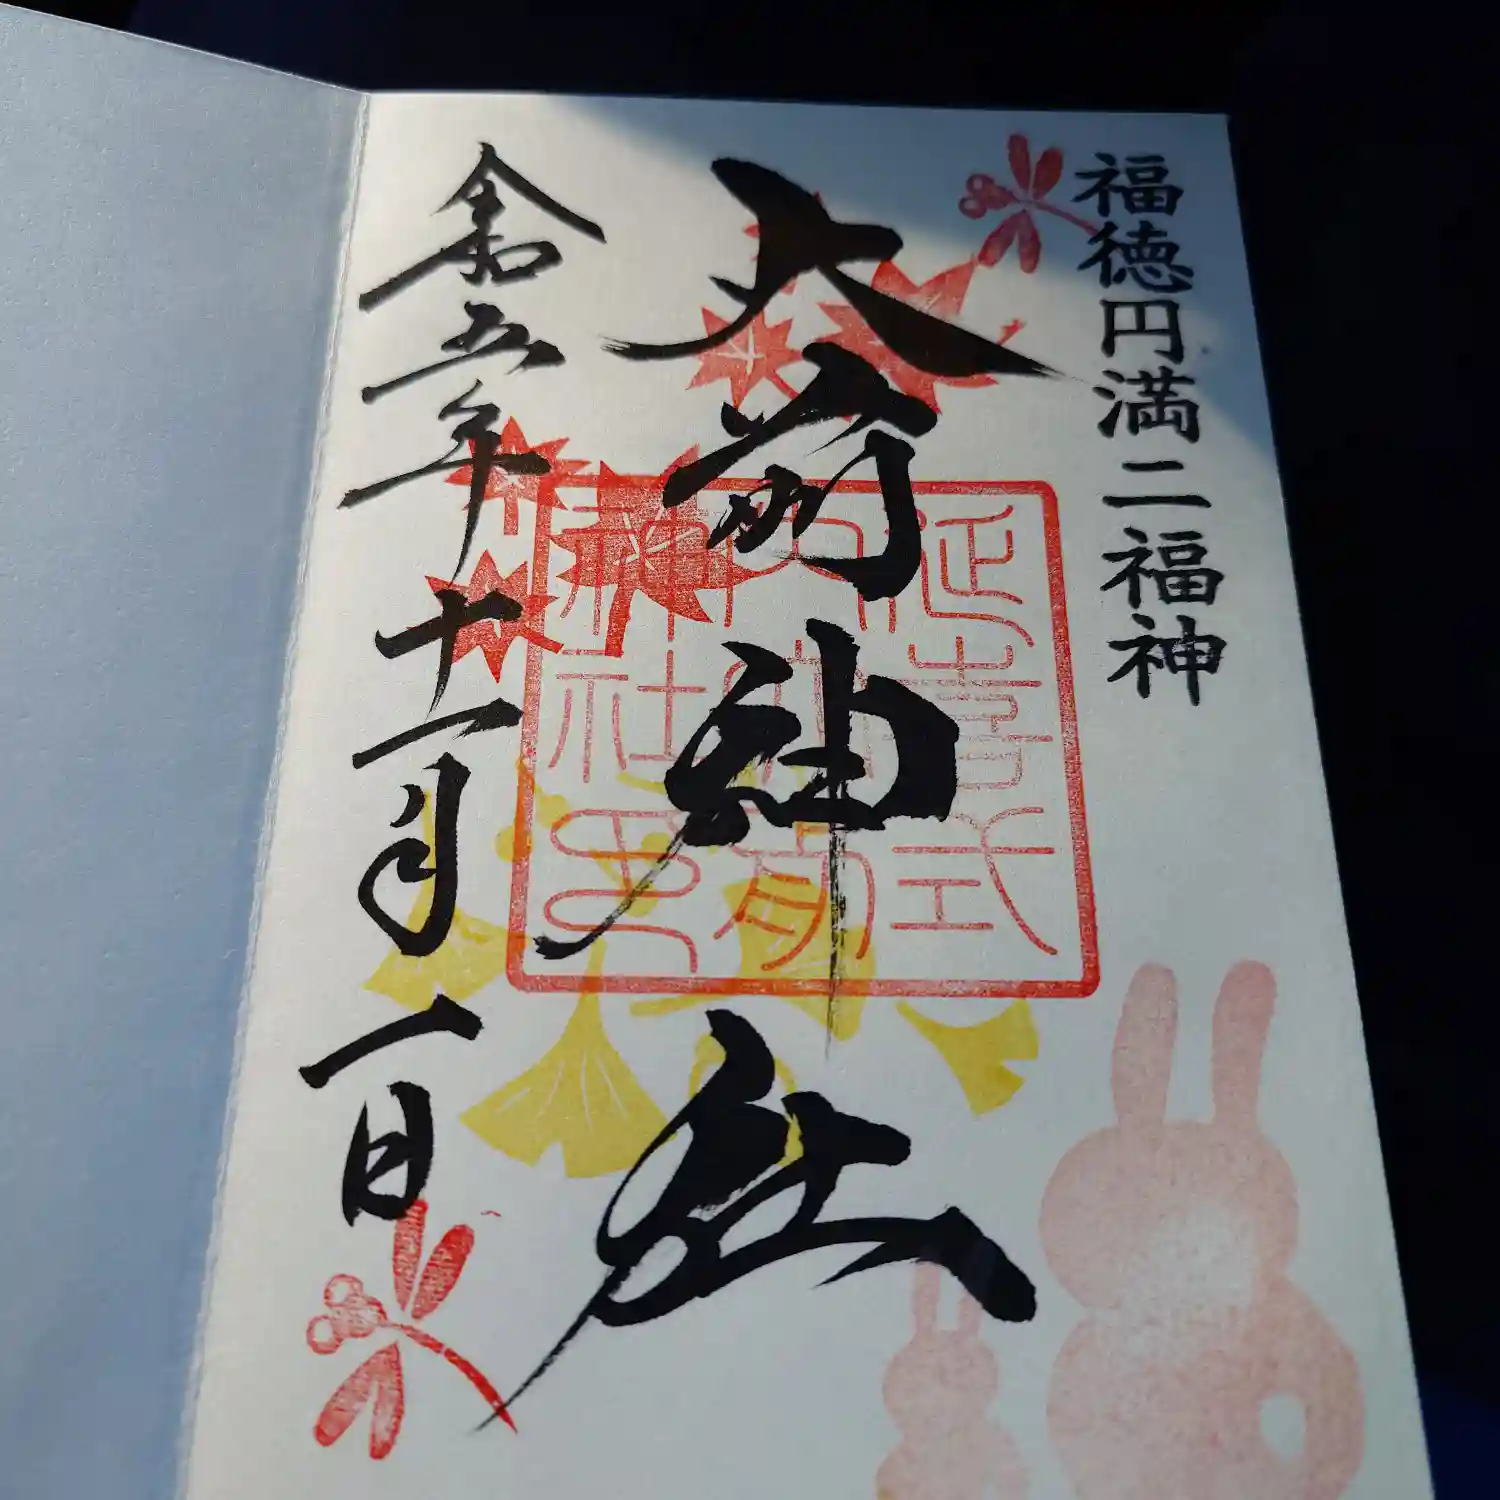 福徳円満二福神
大前神社
延喜式
内大前
神社印
令和五年十一月一日